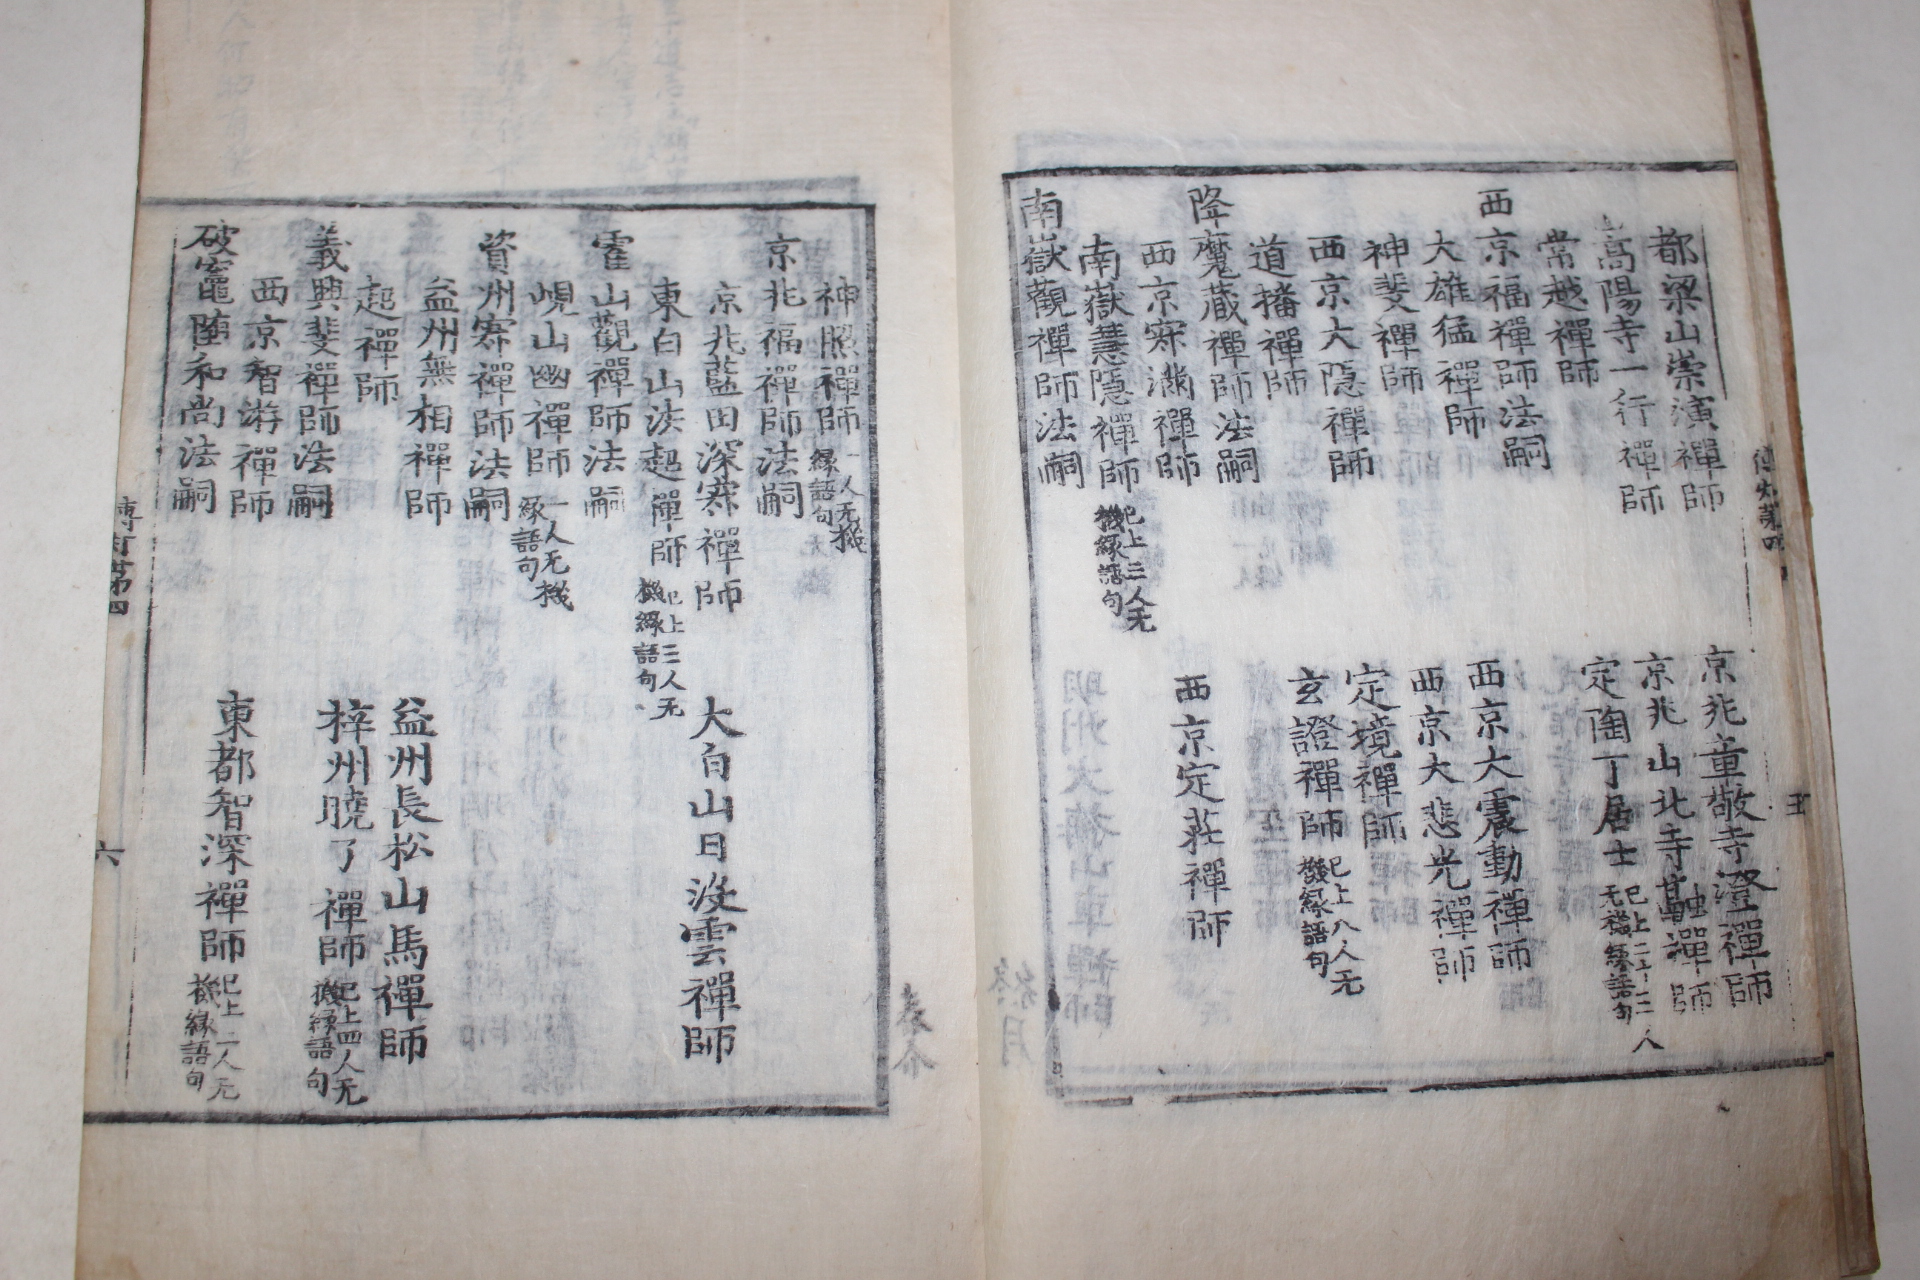 都梁山崇演禪師
京兆童敬寺澄禪師
嵩陽寺一行禪師
京兆山北寺融禪師
常越禪師
定陶丁居士
已上二十三人
无機緣語句
西京福禪師法嗣
大雄猛禪師
西京大震動禪師
神斐禪師
西京大悲光禪師
西京大隱禪師
定境禪師
道播禪師
玄證禪師
已上八人无
機緣語句
降魔蔵禪師法嗣
西京寂滿禪師
西京定莊禪師
南嶽慧隱禪師
已上三人无
機緣語句
南嶽觀禪師法嗣
神照禪師
一人无機
緣語句
京兆福禪師法嗣
京兆藍田深寂禪師
大白山日沒雲禪師
東白山法超禪師
已上三人无
機緣語句
霍山觀禪師法嗣
峴山幽禪師
一人无機
緣語句
資州寂禪師法嗣
益州無相禪師
益州長松山馬禪師
超禪師
梓州曉了禪師
已上四人无
機緣語句
義興斐禪師法嗣
西京智游禪師
東都智深禪師
已上二人无
機緣語句
破竈墮和尚法嗣
六